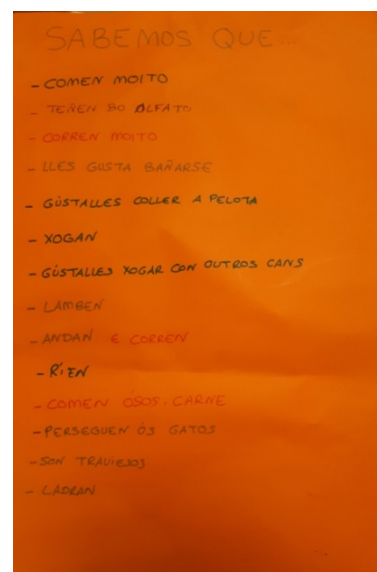 SABEMOS QUE...
- COMEN MOITO
- TEÑEN BO OLFATO
- CORREN MOITO
- LLES GUSTA BAÑARSE
- GÚSTALLES COLLER A PELOTA
- XOGAN
- GÚSTALLES XOGAR CON OUTROS CANS
- LAMBEN
- ANDAN E CORREN
- RÍEN
- COMEN ÓSOS, CARNE
- PERSEGUEN ÓS GATOS
- SON TRAVIESOS
- LADRAN